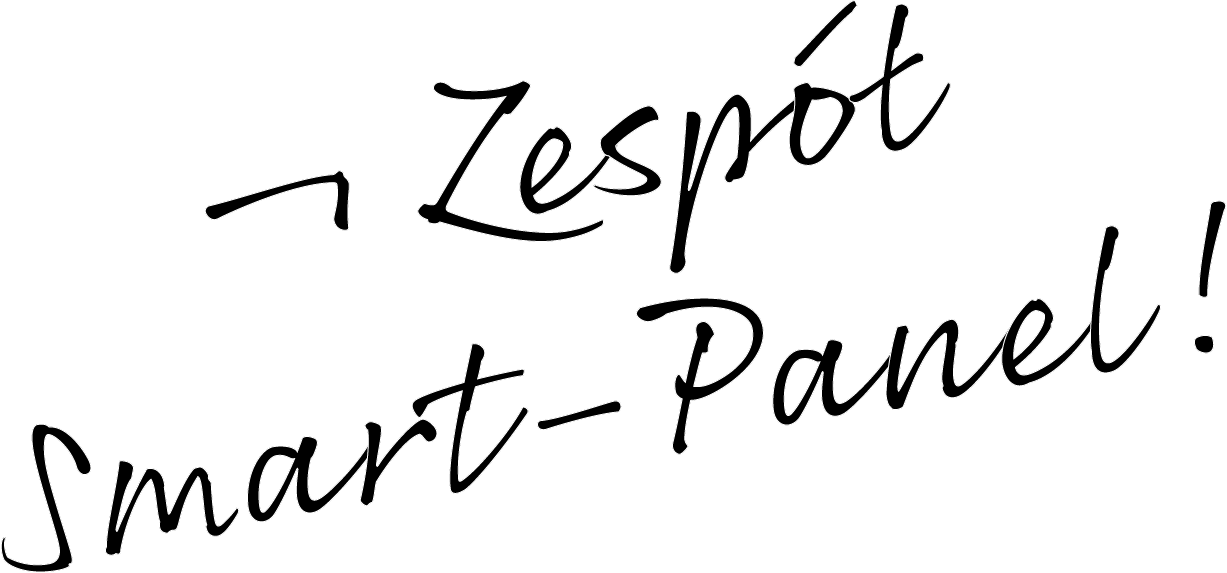 ¬ Zespół
Smart-Panel!